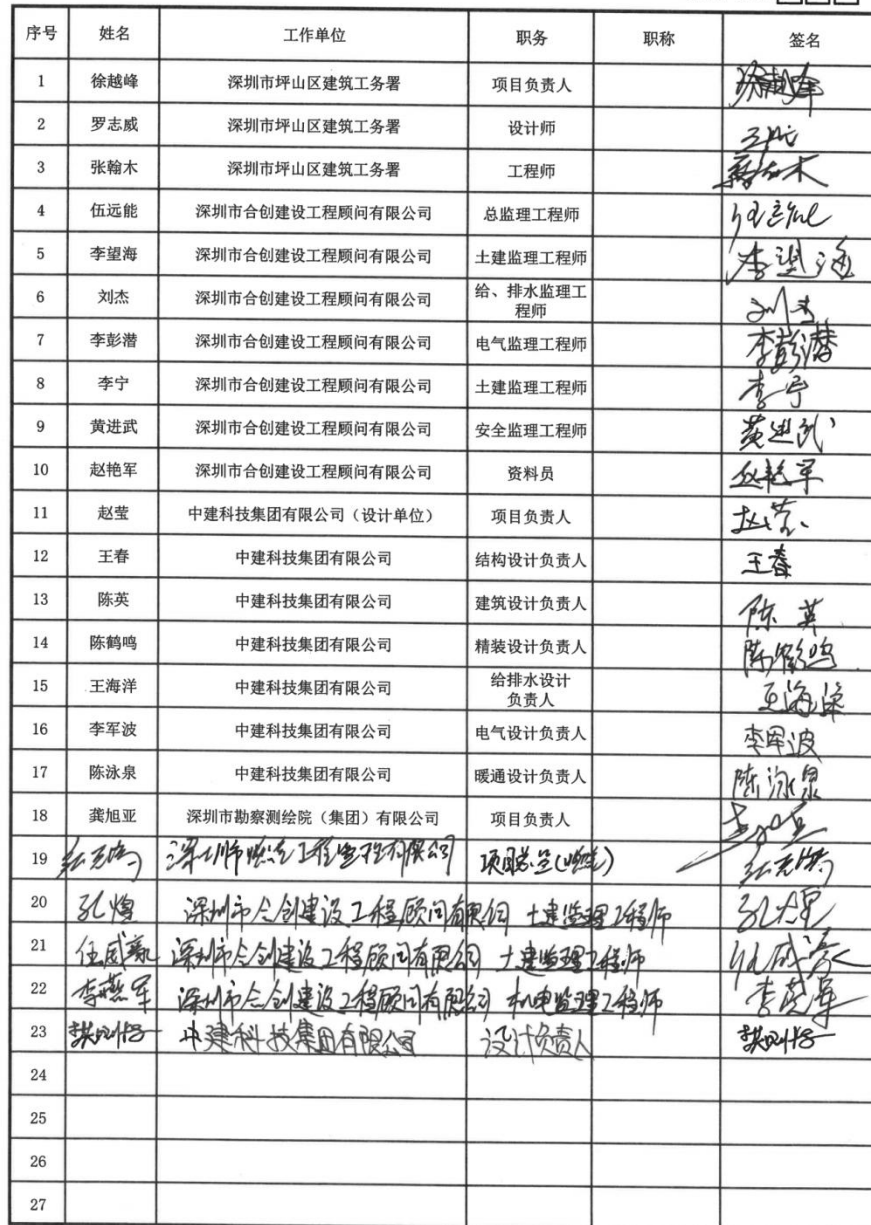 序号 姓名 工作单位 职务 职称 签名
1 徐越峰 深圳市坪山区建筑工务署 项目负责人
2 罗志威 深圳市坪山区建筑工务署 设计师
3 张翰木 深圳市坪山区建筑工务署 工程师
4 伍远能 深圳市合创建设工程顾问有限公司 总监理工程师 伍远能
5 李望海 深圳市合创建设工程顾问有限公司 土建监理工程师 李望海
6 刘杰 深圳市合创建设工程顾问有限公司 给、排水监理工程师 刘杰
7 李彭潜 深圳市合创建设工程顾问有限公司 电气监理工程师 李彭潜
8 李宁 深圳市合创建设工程顾问有限公司 土建监理工程师 李宁
9 黄进武 深圳市合创建设工程顾问有限公司 安全监理工程师 黄进武
10 赵艳军 深圳市合创建设工程顾问有限公司 资料员 赵艳军
11 赵莹 中建科技集团有限公司（设计单位） 项目负责人 赵莹
12 王春 中建科技集团有限公司 结构设计负责人 王春
13 陈英 中建科技集团有限公司 建筑设计负责人 陈英
14 陈鹤鸣 中建科技集团有限公司 精装设计负责人 陈鹤鸣
15 王海洋 中建科技集团有限公司 给排水设计负责人 王海洋
16 李军波 中建科技集团有限公司 电气设计负责人 李军波
17 陈泳泉 中建科技集团有限公司 暖通设计负责人 陈泳泉
18 龚旭亚 深圳市勘察测绘院（集团）有限公司 项目负责人
19 深圳市燃气工程监理有限公司 项目总监(燃气)
20 孔煌 深圳市合创建设工程顾问有限公司 土建监理工程师 孔煌
21 深圳市合创建设工程顾问有限公司 土建监理工程师
22 李燕军 深圳市合创建设工程顾问有限公司 机电监理工程师 李燕军
23 中建科技集团有限公司 设计负责人
24
25
26
27